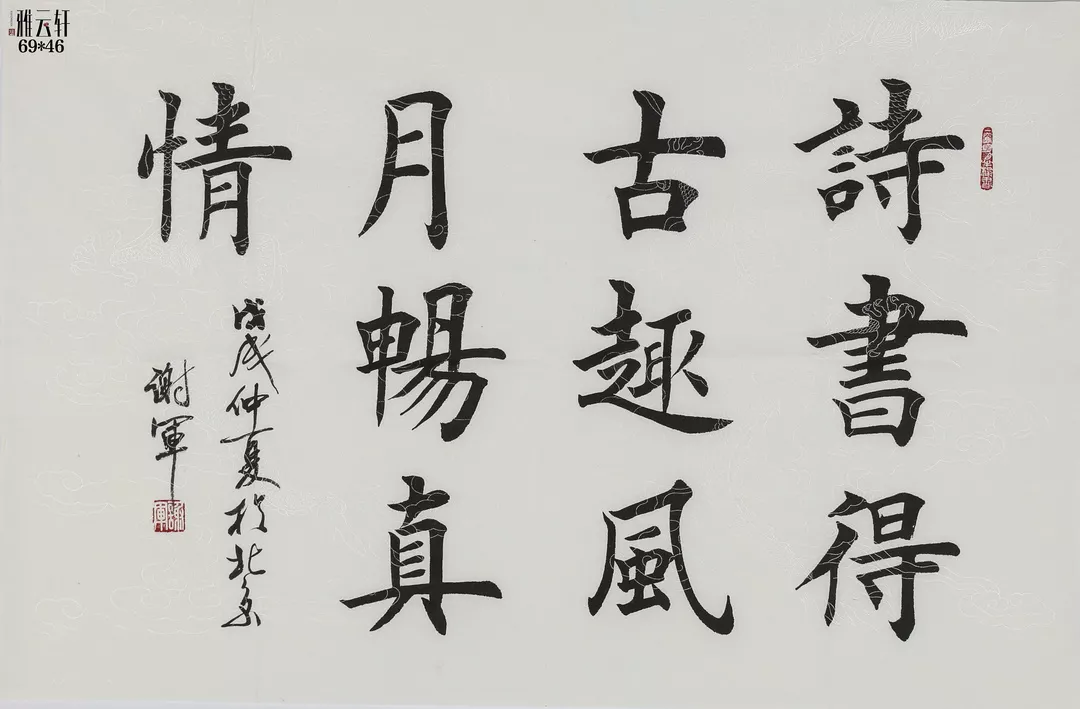 雅云轩
69*46
詩書得
古趣風
月暢真
情
戊戌仲夏於北京
謝軍
謝軍